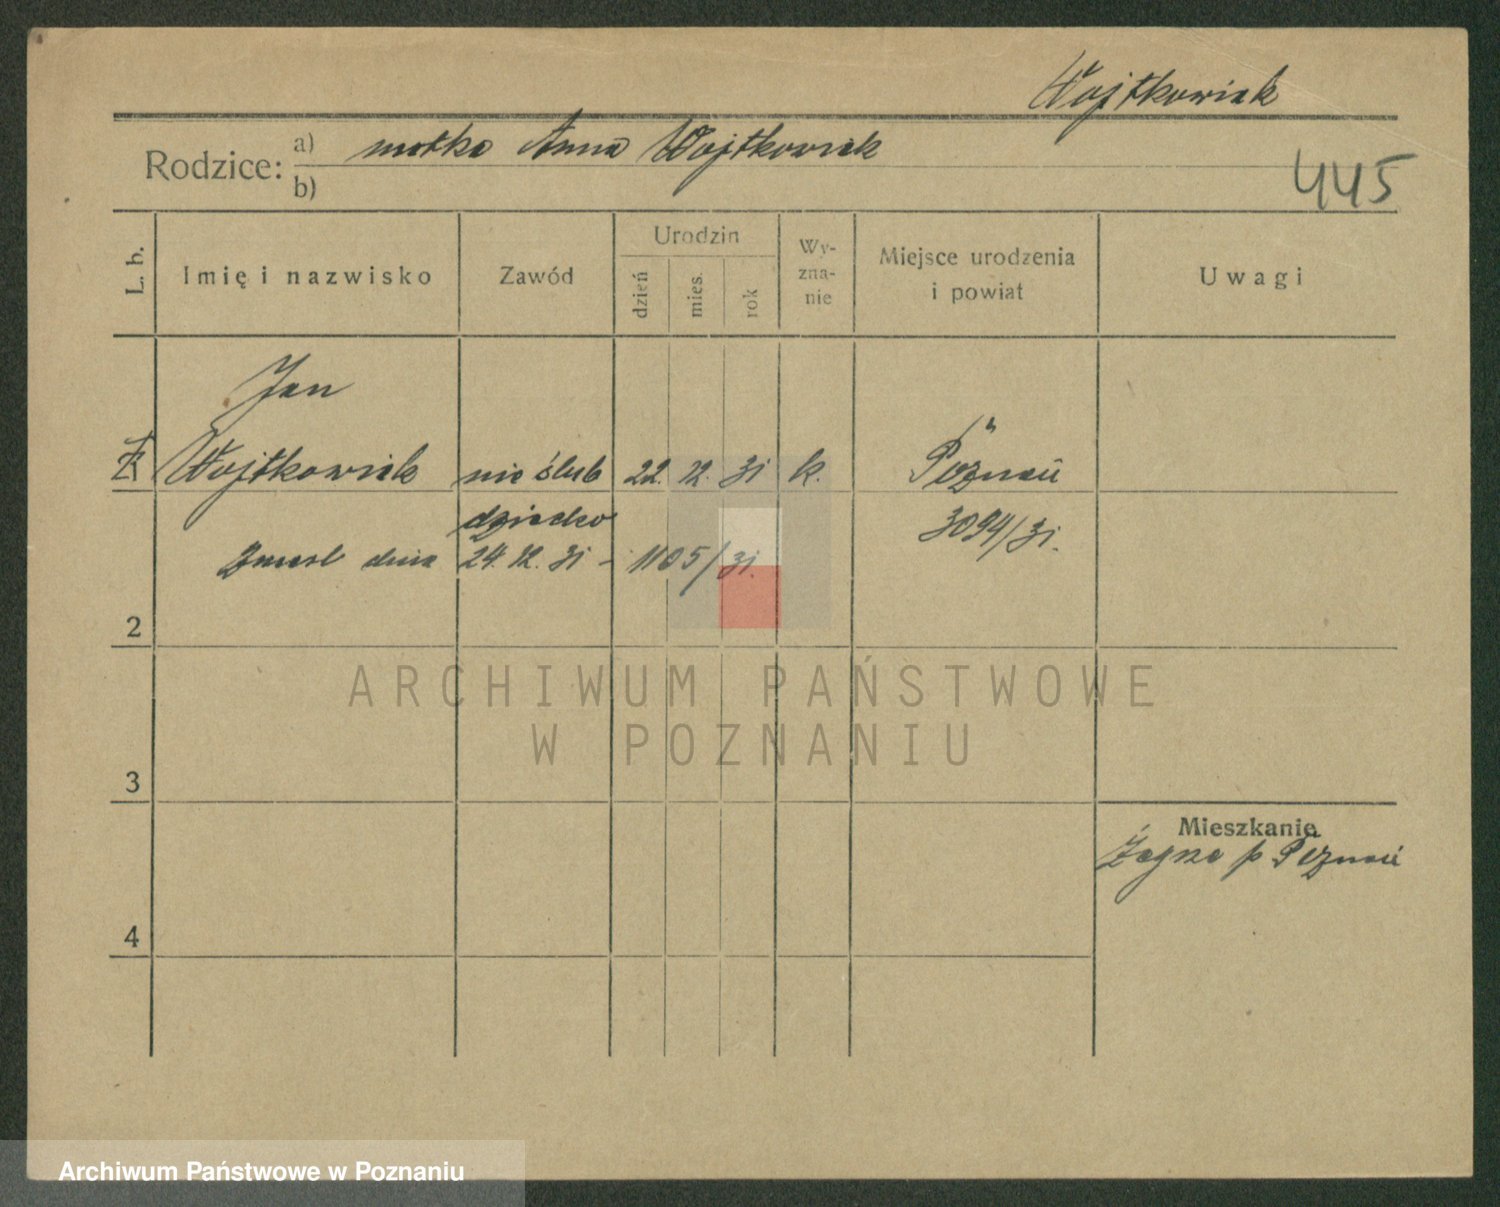 Wojtkowiak
Rodzice: a) matka Anna Wojtkowiak
b)
445
L. b.
Imię i nazwisko
Zawód
Urodzin
dzień
mies.
rok
Wy-
zna-
nie
Miejsce urodzenia
i powiat
Uwagi
Jan
Wojtkowiak nie ślub 22. 12. 31 k. Poznań
dziecko 3094/31.
Zmarł dnia 24. 12. 31 - 1105/31.
2
3
4
Mieszkanie
p Poznań
ARCHIWUM PAŃSTWOWE
W POZNANIU
Archiwum Państwowe w Poznaniu